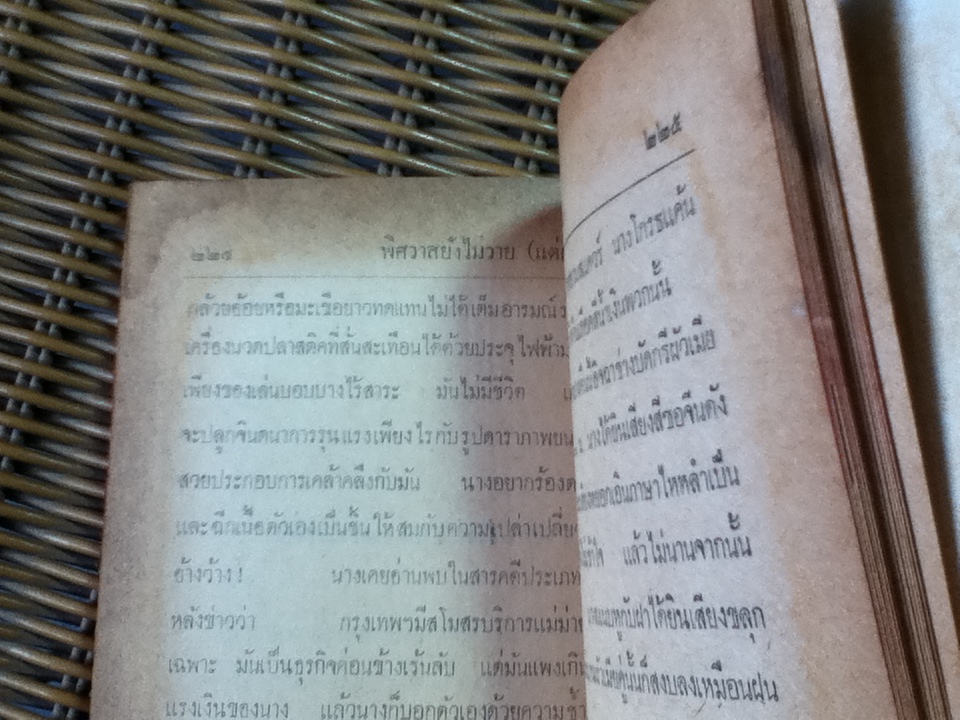 ๒๒๔
พิศวาสยังไม่วาย (แต่
กล้วยอ้อยหรือมะเขือยาวทดแทนไม่ได้เต็มอารมณ์
เครื่องนวดปลาสติคที่สั่นสะเทือนได้ด้วยประจุไฟฟ้า
เพียงของเล่นบอบบางไร้สาระ มันไม่มีชีวิต
จะปลุกจินตนาการรุนแรงเพียงไรกับรูปดาราภาพยน
สวยประกอบการเคล้าคลึงกับมัน นางอยากร้อง
และฉีกเนื้อตัวเองเป็นชิ้นให้สมกับความเปล่าเปลี่ย
อ้างว้าง ! นางเคยอ่านพบในสารคดีประเภท
หลังข่าวว่า กรุงเทพฯมีสโมสรบริการแม่ม่าย
เฉพาะ มันเป็นธุรกิจค่อนข้างเร้นลับ แต่มันแพงเกิน
แรงเงินของนาง แล้วนางก็บอกตัวเองด้วยความ
๒๒๕
นางโกรธแค้น
พวกนั้น
ช่างบัดกรีผัวเมีย
นางได้ยินเสียงสีซอจีนดัง
ภาษาไหหลำเป็น
แล้วไม่นานจากนั้น
หูกับฝาได้ยินเสียงขลุก
ก็สงบลงเหมือนฝน